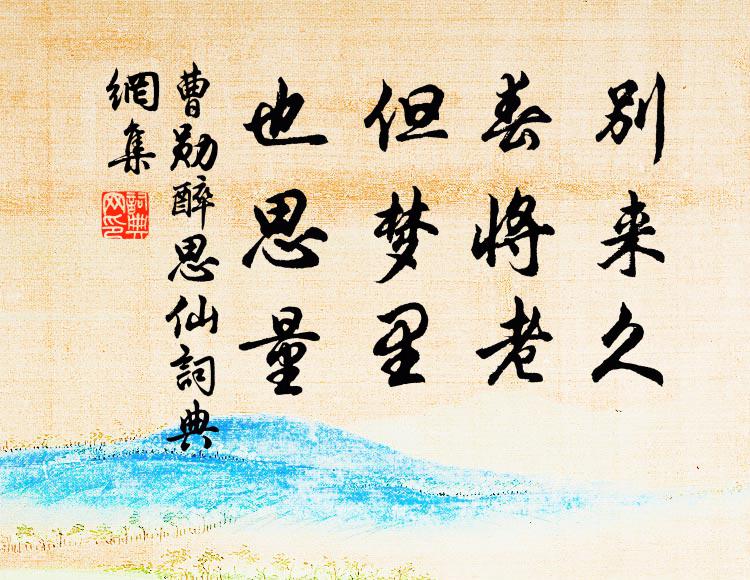 别来久
春将老
但梦里
也思量
曹勋醉思仙詞典
網集
詞典
网印